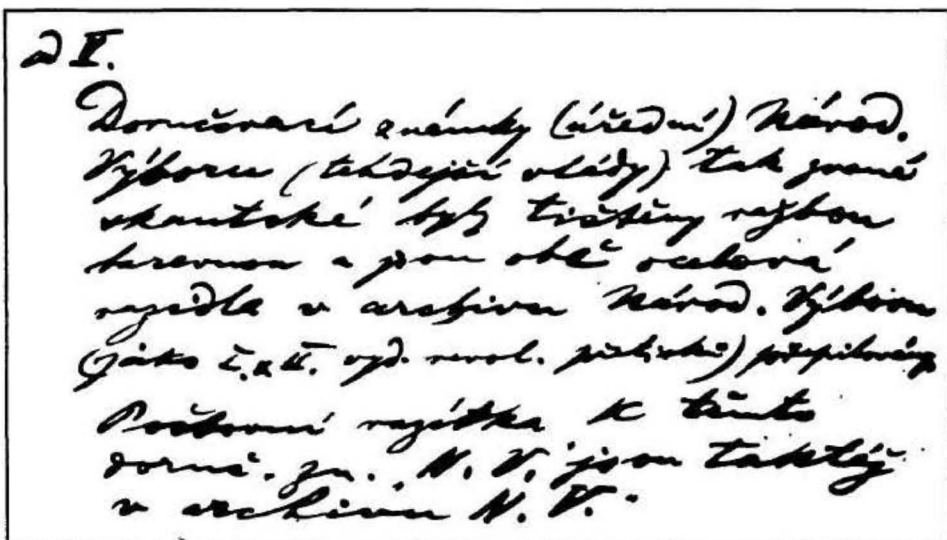 ad I.
Doručovací známky (úřední) Národ.
Výboru (tehdejší vlády) tak zvané
skautské byly tištěny ražbou
barevnou a jsou obě ocelová
razidla v archivu Národ. Výboru
(jako I. a II. vyd. revol. ) přepilována
Poštovní razítka k těmto
doruč. zn. N. V. jsou taktéž
v archivu N. V.